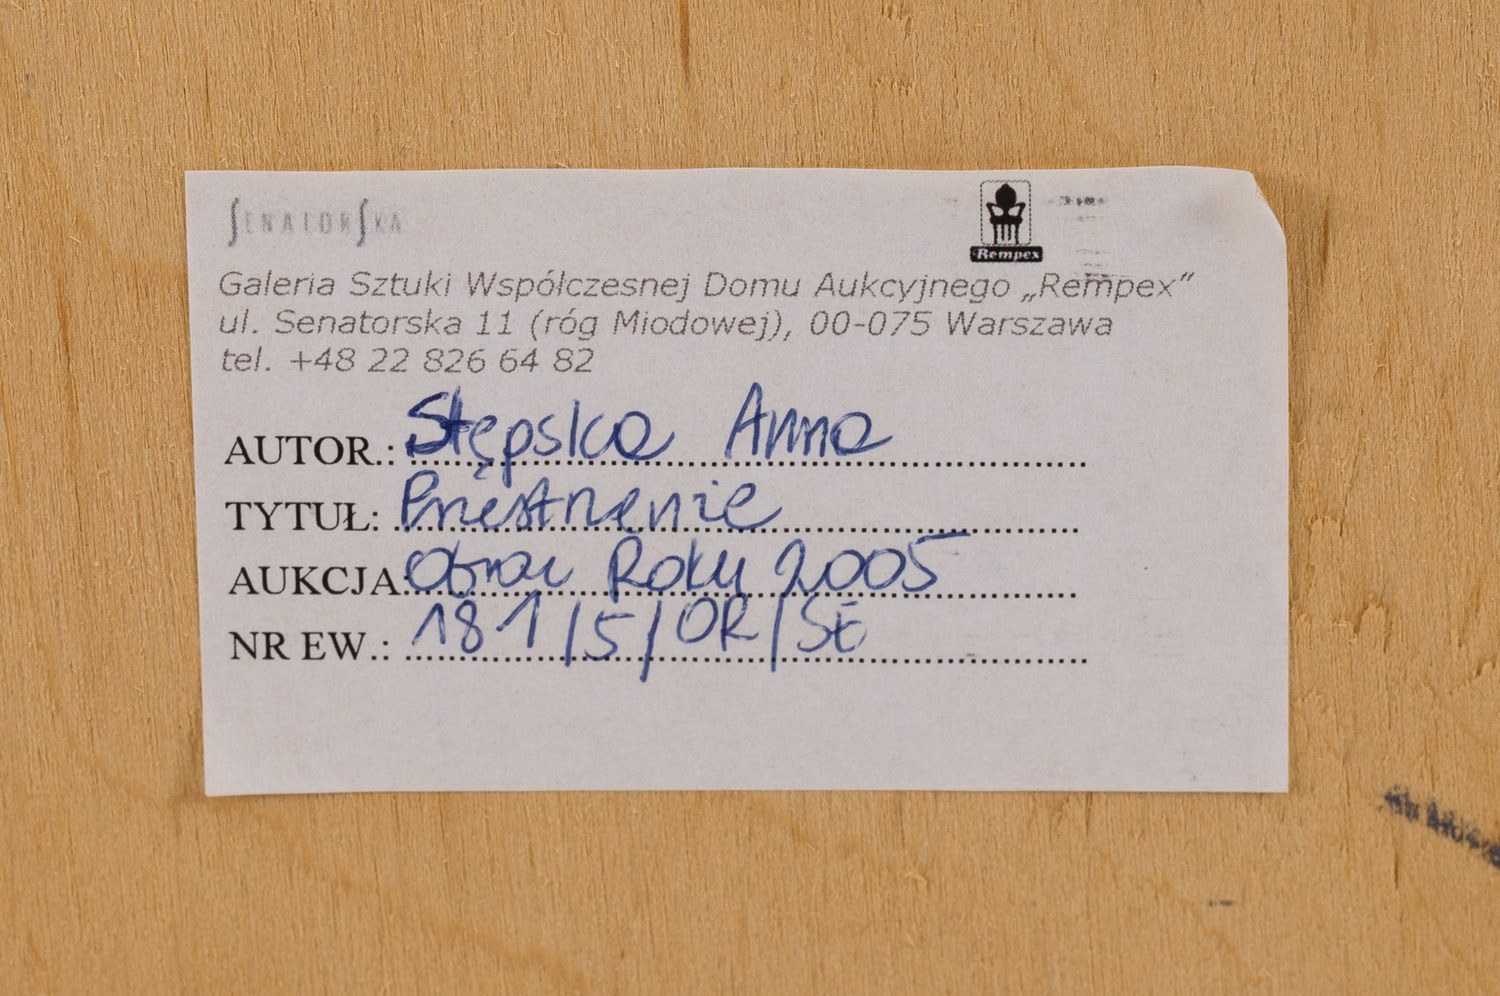 SENATORSKA
Rempex
Galeria Sztuki Współczesnej Domu Aukcyjnego „Rempex”
ul. Senatorska 11 (róg Miodowej), 00-075 Warszawa
tel. +48 22 826 64 82
AUTOR.: Stępska Anna
TYTUŁ: Przestrzenie
AUKCJA: Obraz Roku 2005
NR EW.: 181/5/OR/SE